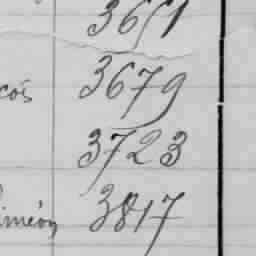 3651
cois 3679
3723
Siméon 3817